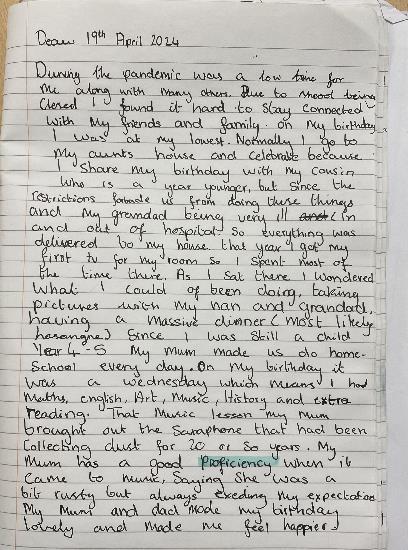 Dear 19th April 2024
During the pandemic was a low time for
me along with many others. Due to shcool being
closed I found it hard to stay connected
with my friends and family. on my birthday
I was at my lowest. Normally I go to
my aunts house and celebrate because
I share my birthday with my cousin
who is a year younger, but since the
restrictions us from doing these things
and my grandad being very ill (in
and out of hospital. So everything was
delivered to my house. that year I got my
first tv for my room so I spent most of
the time there. As I sat there I wondered
what I could of been doing, taking
pictures with my nan and grandad,
having a massive dinner (most likely
) Since I was still a child
Year 4-5 My Mum made us do home-
School every day. On my birthday it
was a wednesday which means I had
Maths, english, Art, Music, History and extra
reading. That Music lesson my mum
brought out the Saxaphone that had been
collecting dust for 20 or so years. My
Mum has a good proficiency when it
came to music, Saying she was a
bit rusty but always exeding my expectation
My Mum and dad made my birthday
lovely and made me feel happier